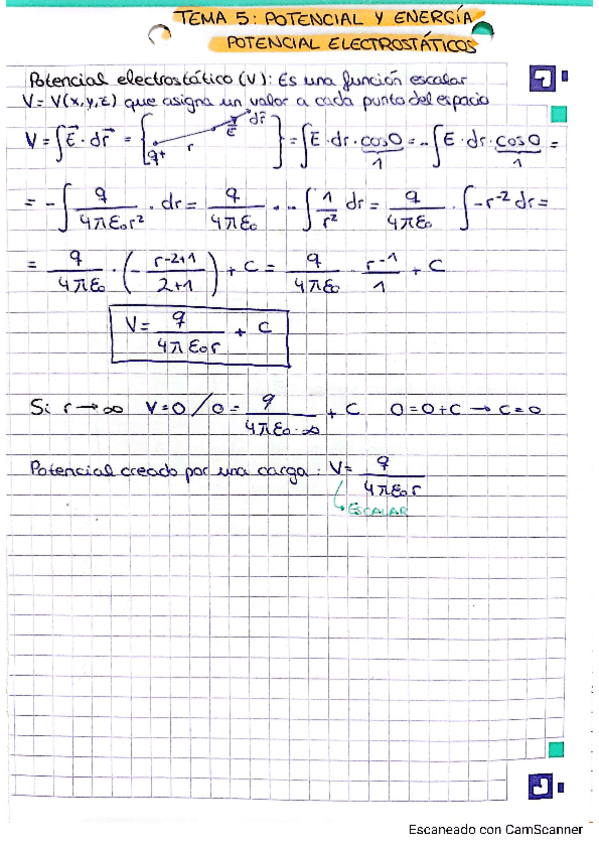 TEMA 5: POTENCIAL Y ENERGÍA
POTENCIAL ELECTROSTÁTICOS
Potencial electrostático (V): Es una función escalar
V = V(x,y,z) que asigna un valor a cada punto del espacio
V = ∫E⃗ · dr⃗ = [q+ r E⃗ dr⃗] = ∫E · dr · cos0 = -∫E · dr · cos0 =
1 1
= -∫ q/4πε₀r² · dr = q/4πε₀ · -∫ 1/r² dr = q/4πε₀ · ∫-r⁻² dr =
= q/4πε₀ · (- r-2+1/2+1) + C = q/4πε₀ · r-1/1 + C
V = q/4πε₀r + C
Si r → ∞ V=0 / 0 = q/4πε₀·∞ + C 0=0+C → C=0
Potencial creado por una carga: V= q/4πε₀r
ESCALAR
Escaneado con CamScanner